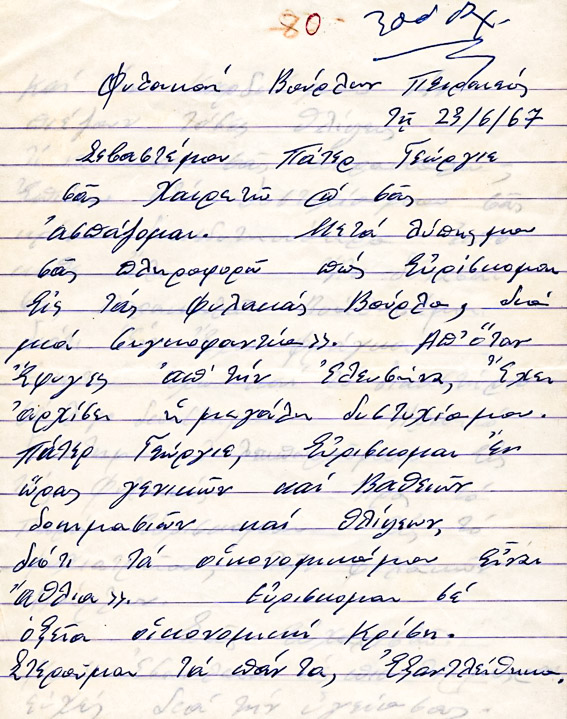 80
Φυλακαί Βούρλων Πειραιώς
τῇ 23/6/67
Σεβαστέ μου Πάτερ Γεώργιε
σᾶς Χαιρετῶ & σᾶς
ἀσπάζομαι. Μετά λύπης μου
σᾶς πληροφορῶ πώς Εὑρίσκομαι
Εἰς τάς φυλακάς Βούρλα, διά
μιά συγκοφαντία». Ἀπ' ὅταν
Ἔφυγες ἀπ' τήν Ἐλευσῖνα, Ἔχει
ἀρχίσει ἡ μεγάλη δυστυχία μου.
Πάτερ Γεώργιε, Εὑρίσκομαι Ἐν
ὥρας γενικῶν καί Βαθειῶν
δοκιμασιῶν καί θλίψεων,
διότι τά οἰκονομικά μου Εἶναι
ἄθλια». Εὑρίσκομαι σέ
ὀξεῖα οἰκονομική Κρίση.
Στεροῦμαι τά πάντα, Ἐξαντλείθηκα.